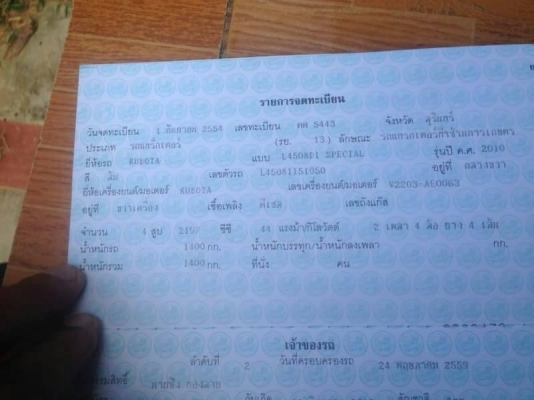 รายการจดทะเบียน
วันจดทะเบียน 1 กันยายน 2554 เลขทะเบียน ตค 5443 จังหวัด สุรินทร์
ประเภท รถแทรกเตอร์ (รย. 13) ลักษณะ รถแทรกเตอร์ที่ใช้ในการเกษตร
ยี่ห้อรถ KUBOTA แบบ L4508D1 SPECIAL รุ่นปี ค.ศ. 2010
สี ส้ม เลขตัวรถ L45081151050 อยู่ที่ กลางขวา
ยี่ห้อเครื่องยนต์/มอเตอร์ KUBOTA เลขเครื่องยนต์/มอเตอร์ V2203-AE0063
อยู่ที่ ขวาเครื่อง เชื้อเพลิง ดีเซล เลขถังแก๊ส
จำนวน 4 สูบ 2197 ซีซี 44 แรงม้า/กิโลวัตต์ 2 เพลา 4 ล้อ ยาง 4 เส้น
น้ำหนักรถ 1400 กก. น้ำหนักบรรทุก/น้ำหนักลงเพลา กก.
น้ำหนักรวม 1400 กก. ที่นั่ง คน
เจ้าของรถ
ลำดับที่ 2 วันที่ครอบครองรถ 24 พฤษภาคม 2559